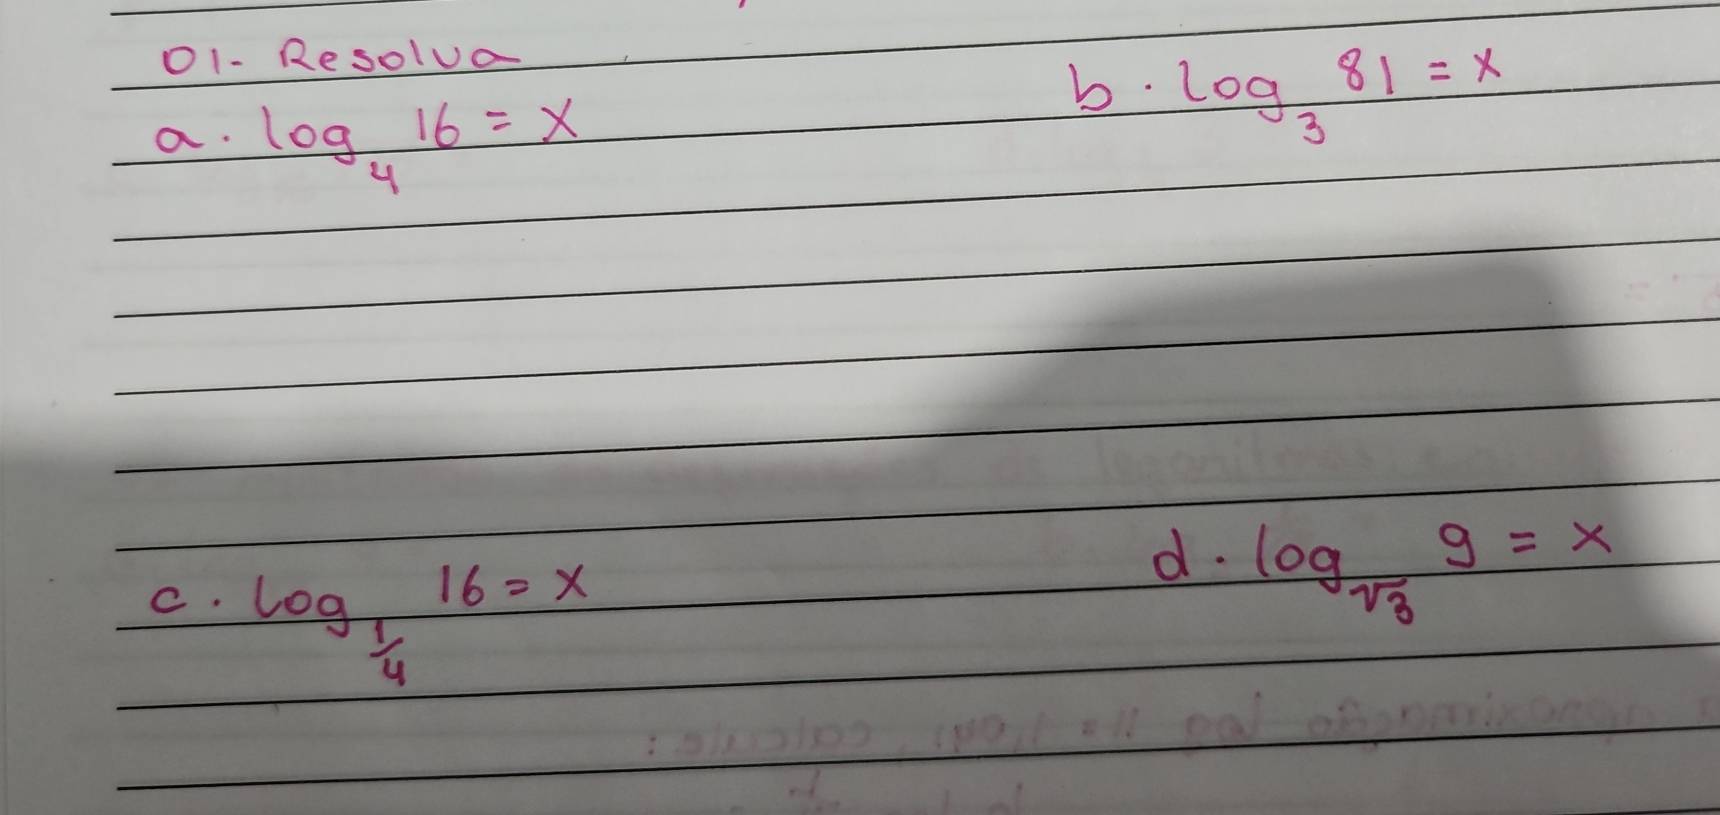 01- Resolva
a. log₄ 16 = x
b. log₃ 81 = x
c. log_{1/4} 16 = x
d. log_{√3} 9 = x